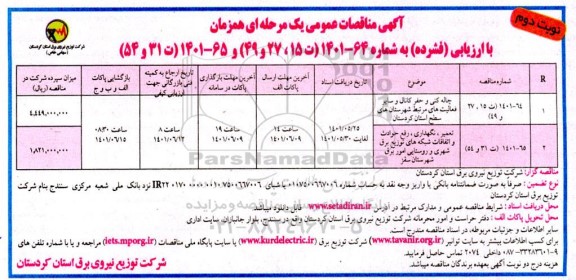 نوبت دوم
آگهی مناقصات عمومی یک مرحله ای همزمان
با ارزیابی (فشرده) به شماره ۶۴-۱۴۰۱ (ت ۱۵، ۲۷ و ۴۹) و ۶۵-۱۴۰۱ (ت ۳۱ و ۵۴)
شرکت توزیع نیروی برق استان کردستان
(سهامی خاص)
R | شماره مناقصه | موضوع | تاریخ دریافت اسناد | آخرین مهلت ارسال پاکات الف | آخرین مهلت بارگذاری پاکات در سامانه | تاریخ ارجاع به کمیته فنی بازرگانی جهت ارزیابی کیفی | بازگشایی پاکات الف و ب و ج | میزان سپرده شرکت در مناقصه (ریال)
۱ | ۶۴-۱۴۰۱ (ت ۱۵، ۲۷ و ۴۹) | چاله کنی و حفر کانال و سایر فعالیت های مرتبط شهرستان های سطح استان کردستان | ۱۴۰۱/۰۵/۲۵ لغایت ۱۴۰۱/۰۵/۳۰ | ساعت ۱۴ ۱۴۰۱/۰۶/۰۹ | ساعت ۱۹ ۱۴۰۱/۰۶/۰۹ | ساعت ۸ ۱۴۰۱/۰۶/۱۲ | ساعت ۰۸:۳۰ ۱۴۰۱/۰۶/۱۵ | ۴,۴۴۹,۰۰۰,۰۰۰
۲ | ۶۵-۱۴۰۱ (ت ۳۱ و ۵۴) | تعمیر، نگهداری، رفع حوادث و اتفاقات شبکه های توزیع برق شهری و روستایی امور برق شهرستان سقز | ۱,۸۲۱,۰۰۰,۰۰۰
مناقصه گزار: شرکت توزیع نیروی برق استان کردستان
نوع تضمین: صرفاً به صورت ضمانتنامه بانکی یا واریز وجه نقد به حساب شماره ۰۱۰۷۵۰۰۶۶۷۰۰۶ با شبای نزد بانک ملی شعبه مرکزی سنندج بنام شرکت
توزیع برق استان کردستان
محل دریافت اسناد: شرایط مناقصه عمومی و مدارک مرتبط در آدرس www.setadiran.ir قابل دانلود میباشد.
محل تحویل پاکات الف: دفتر حراست و امور محرمانه شرکت توزیع نیروی برق استان کردستان واقع در سنندج، بلوار جانبازان، سایت اداری
سایر اطلاعات و جزئیات مربوطه، در اسناد مناقصه مندرج است.
برای کسب اطلاعات بیشتر به سایت توانیر (www.tavanir.org.ir) شرکت توزیع برق (www.kurdelectric.ir) یا سایت پایگاه ملی مناقصات (iets.mporg.ir) مراجعه و یا با شماره تلفن های
۹-۳۳۲۸۳۶۰۱-۰۸۷ داخلی ۲۰۷۴ تماس حاصل فرمایید.
هزینه درج دو نوبت آگهی بعهده برندگان مناقصه میباشد.
شرکت توزیع نیروی برق استان کردستان
ParsNamadData